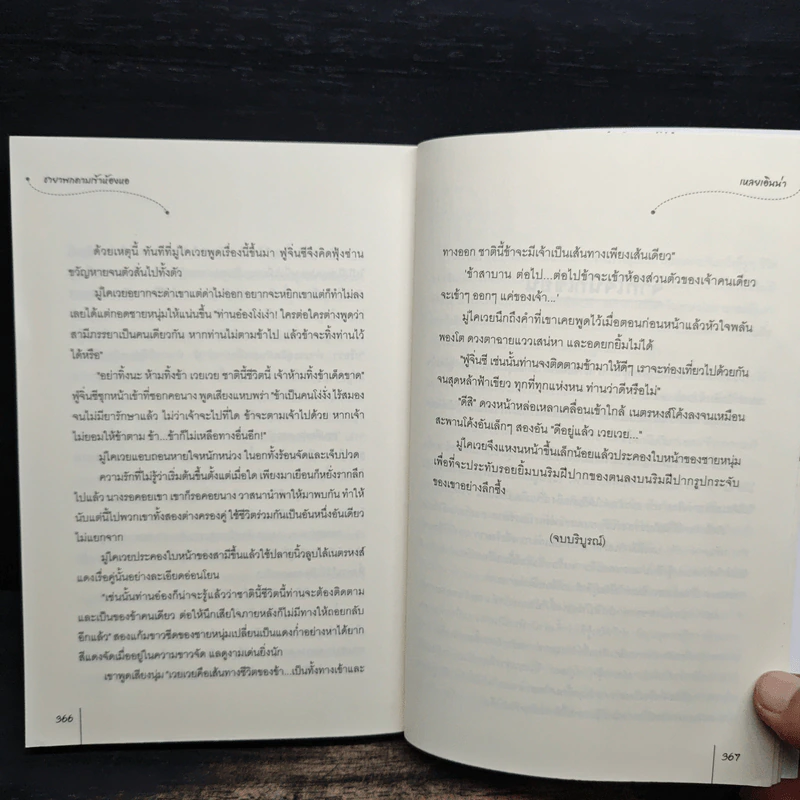 ชายาพกดาบเข้าห้องหอ
ด้วยเหตุนี้ ทันทีที่มู่ไคเวยพูดเรื่องนี้ขึ้นมา ฟู่จิ่นซีจึงคิดฟุ้งซ่าน
ขวัญหายจนตัวสั่นไปทั้งตัว
มู่ไคเวยอยากจะด่าเขาแต่ด่าไม่ออก อยากจะหยิกเขาแต่ก็ทำไม่ลง
เลยได้แต่กอดชายหนุ่มให้แน่นขึ้น "ท่านอ๋องโง่เง่า! ใครต่อใครต่างพูดว่า
สามีภรรยาเป็นคนเดียวกัน หากท่านไม่ตามข้าไป แล้วข้าจะทิ้งท่านไว้
ได้หรือ"
"อย่าทิ้งนะ ห้ามทิ้งข้า เวยเวย ชาตินี้ชีวิตนี้ เจ้าห้ามทิ้งข้าเด็ดขาด"
ฟู่จิ่นซีซุกหน้าเข้าที่ซอกคอนาง พูดเสียงแหบพร่า "ข้าเป็นคนโง่งั่ง ไร้สมอง
จนไม่มียารักษาแล้ว ไม่ว่าเจ้าจะไปที่ใด ข้าจะตามเจ้าไปด้วย หากเจ้า
ไม่ยอมให้ข้าตาม ข้า...ข้าก็ไม่เหลือทางอื่นอีก!"
มู่ไคเวยแอบถอนหายใจหนักหน่วง ในอกทั้งร้อนจัดและเจ็บปวด
ความรักที่ไม่รู้ว่าเริ่มต้นขึ้นตั้งแต่เมื่อใด เพียงมาเยือนก็หยั่งรากลึก
ไปแล้ว นางรอคอยเขา เขาก็รอคอยนาง วาสนานำพาให้มาพบกัน ทำให้
นับแต่นี้ไปพวกเขาทั้งสองต่างครองคู่ ใช้ชีวิตร่วมกันเป็นอันหนึ่งอันเดียว
ไม่แยกจาก
มู่ไคเวยประคองใบหน้าของสามีขึ้นแล้วใช้ปลายนิ้วลูบไล้เนตรหงส์
แดงเรื่อคู่นั้นอย่างละเอียดอ่อนโยน
"เช่นนั้นท่านอ๋องก็น่าจะรู้แล้วว่าชาตินี้ชีวิตนี้ท่านจะต้องติดตาม
และเป็นของข้าคนเดียว ต่อให้นึกเสียใจภายหลังก็ไม่มีทางให้ถอยกลับ
อีกแล้ว" สองแก้มขาวซีดของชายหนุ่มเปลี่ยนเป็นแดงก่ำอย่างหาได้ยาก
สีแดงจัดเมื่ออยู่ในความขาวจัด แลดูงามเด่นยิ่งนัก
เขาพูดเสียงนุ่ม "เวยเวยคือเส้นทางชีวิตของข้า...เป็นทั้งทางเข้าและ
366
เหลยเอินน่า
ทางออก ชาตินี้ข้าจะมีเจ้าเป็นเส้นทางเพียงเส้นเดียว"
'ข้าสาบาน ต่อไป...ต่อไปข้าจะเข้าห้องส่วนตัวของเจ้าคนเดียว
จะเข้าๆ ออกๆ แค่ของเจ้า...'
มู่ไคเวยนึกถึงคำที่เขาเคยพูดไว้เมื่อตอนก่อนหน้าแล้วหัวใจพลัน
พองโต ดวงตาฉายแววเสน่หา และอดยกยิ้มไม่ได้
"ฟู่จิ่นซี เช่นนั้นท่านจงติดตามข้ามาให้ดีๆ เราจะท่องเที่ยวไปด้วยกัน
จนสุดหล้าฟ้าเขียว ทุกที่ทุกแห่งหน ท่านว่าดีหรือไม่"
"ดีสิ" ดวงหน้าหล่อเหลาเคลื่อนเข้าใกล้ เนตรหงส์โค้งลงจนเหมือน
สะพานโค้งอันเล็กๆ สองอัน "ดีอยู่แล้ว เวยเวย..."
มู่ไคเวยจึงแหงนหน้าขึ้นเล็กน้อยแล้วประคองใบหน้าของชายหนุ่ม
เพื่อที่จะประทับรอยยิ้มบนริมฝีปากของตนลงบนริมฝีปากรูปกระจับ
ของเขาอย่างลึกซึ้ง
(จบบริบูรณ์)
367